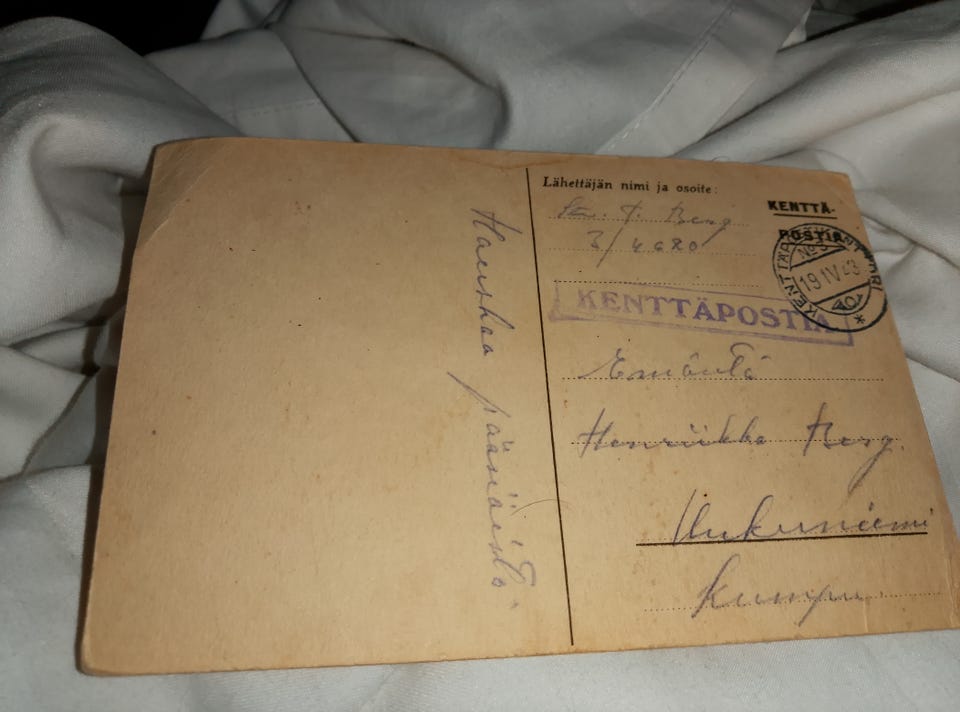 Hauskaa pääsiäistä.
Lähettäjän nimi ja osoite:
J. Berg
3/4680
KENTTÄ-
POSTIA
19 IV 43
KENTTÄPOSTIA
Emäntä
Henriikka Berg.
Uukuniemi
Kumpu.